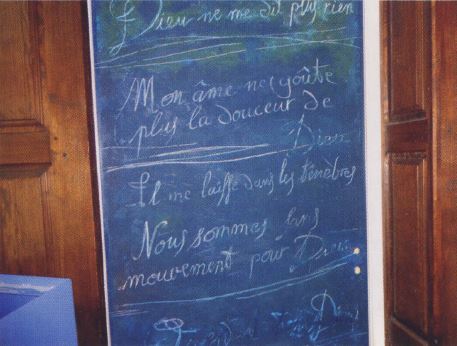 Dieu ne me dit plus rien
Mon âme ne goûte
plus la douceur de
Dieu
Il me laisse dans les ténèbres
Nous sommes sans
mouvement pour Dieu
Dieu